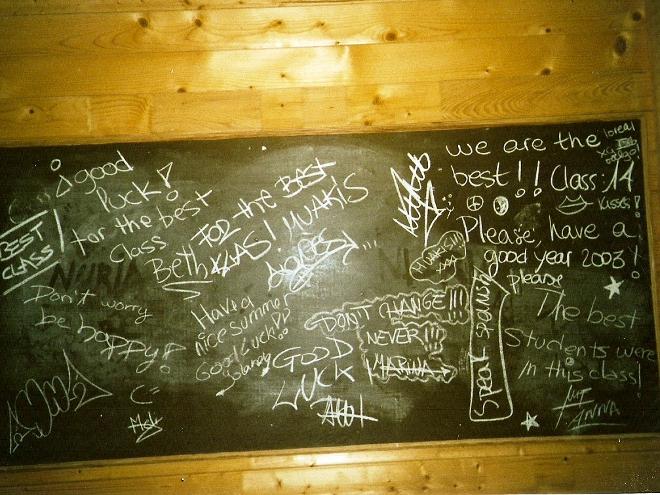 good
luck!
for the best
class
Beth
BEST
CLASS
NURIA
Don't worry
be happy!
FOR the BEST
KLAS! MUAKIS
Have a
nice summer
Good Luck
Yolanda
DON'T CHANGE!!!
NEVER!!!
MARINA
GOOD
LUCK
we are the
best!! Class: 14
Kisses!
Please, have a
good year 2003!
please
Speak spanish
The best
Students were
in this class!
ANNA